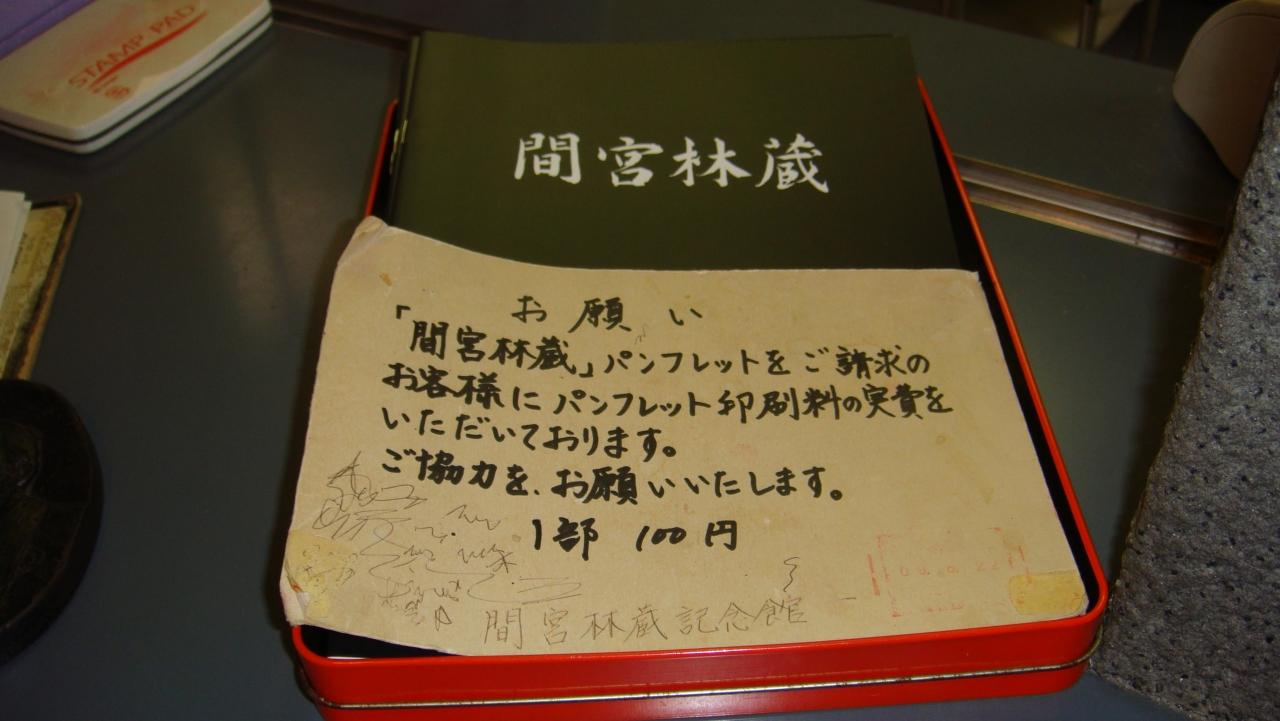 STAMP PAD
間宮林蔵
お願い
「間宮林蔵」パンフレットをご請求の
お客様にパンフレット印刷料の実費を
いただいております。
ご協力を、お願いいたします。
1部 100円
間宮林蔵記念館